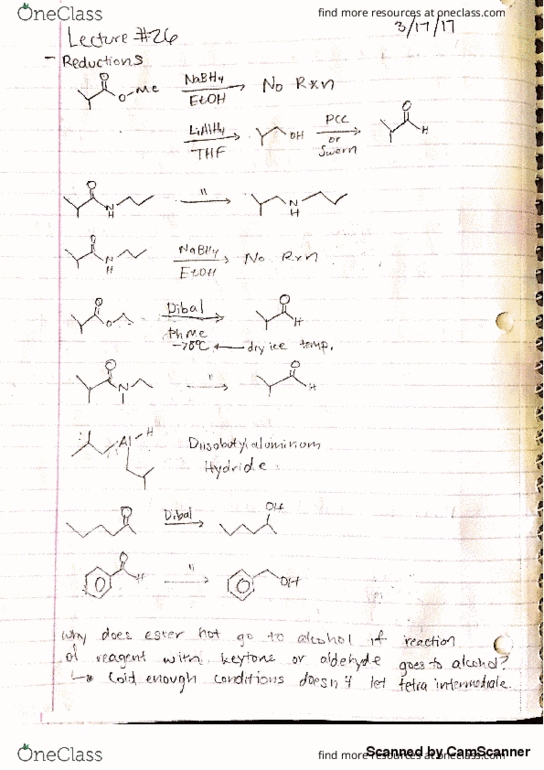 OneClass
find more resources at oneclass.com
3/17/17
Lecture #26
- Reductions
O
O-Me
NaBH4
EtOH
No Rxn
LiAlH4
THF
OH
PCC
or
Swern
O
H
O
N
H
"
N
H
O
N
H
NaBH4
EtOH
No Rxn
O
O
Dibal
PhMe
-78°C ← dry ice temp.
O
H
O
N
"
O
H
Al-H
Diisobutylaluminum
Hydride
O
Dibal
OH
O
H
"
OH
Why does ester not go to alcohol if reaction
of reagent with ketone or aldehyde goes to alcohol?
↳ Cold enough conditions doesn't let tetra intermediate.
OneClass
find more resources at oneclass.com
Scanned by CamScanner